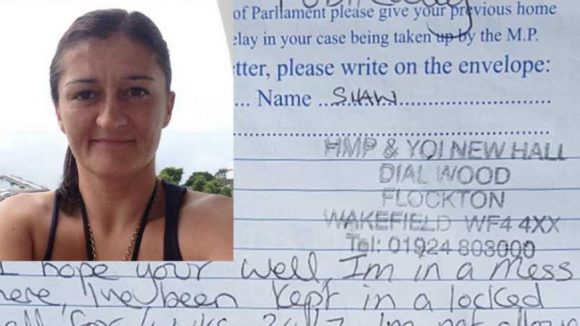 Publically
of Parliament please give your previous home
elay in your case being taken up by the M.P.
etter, please write on the envelope:
Name SHAW
HMP & YOI NEW HALL
DIAL WOOD
FLOCKTON
WAKEFIELD WF4 4XX
Tel: 01924 803000
I hope your well, Im in a mess
here, I've been kept in a locked
24/7 Im not